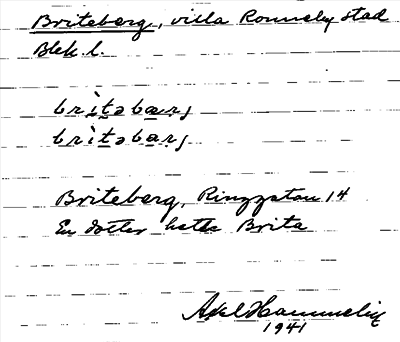 Briteberg, villa Ronneby stad
Blek. l.
brìtəbærj
brìtəbarj
Briteberg, Ringgatan 14
En dotter hette Brita
Axel Hammelin
1941